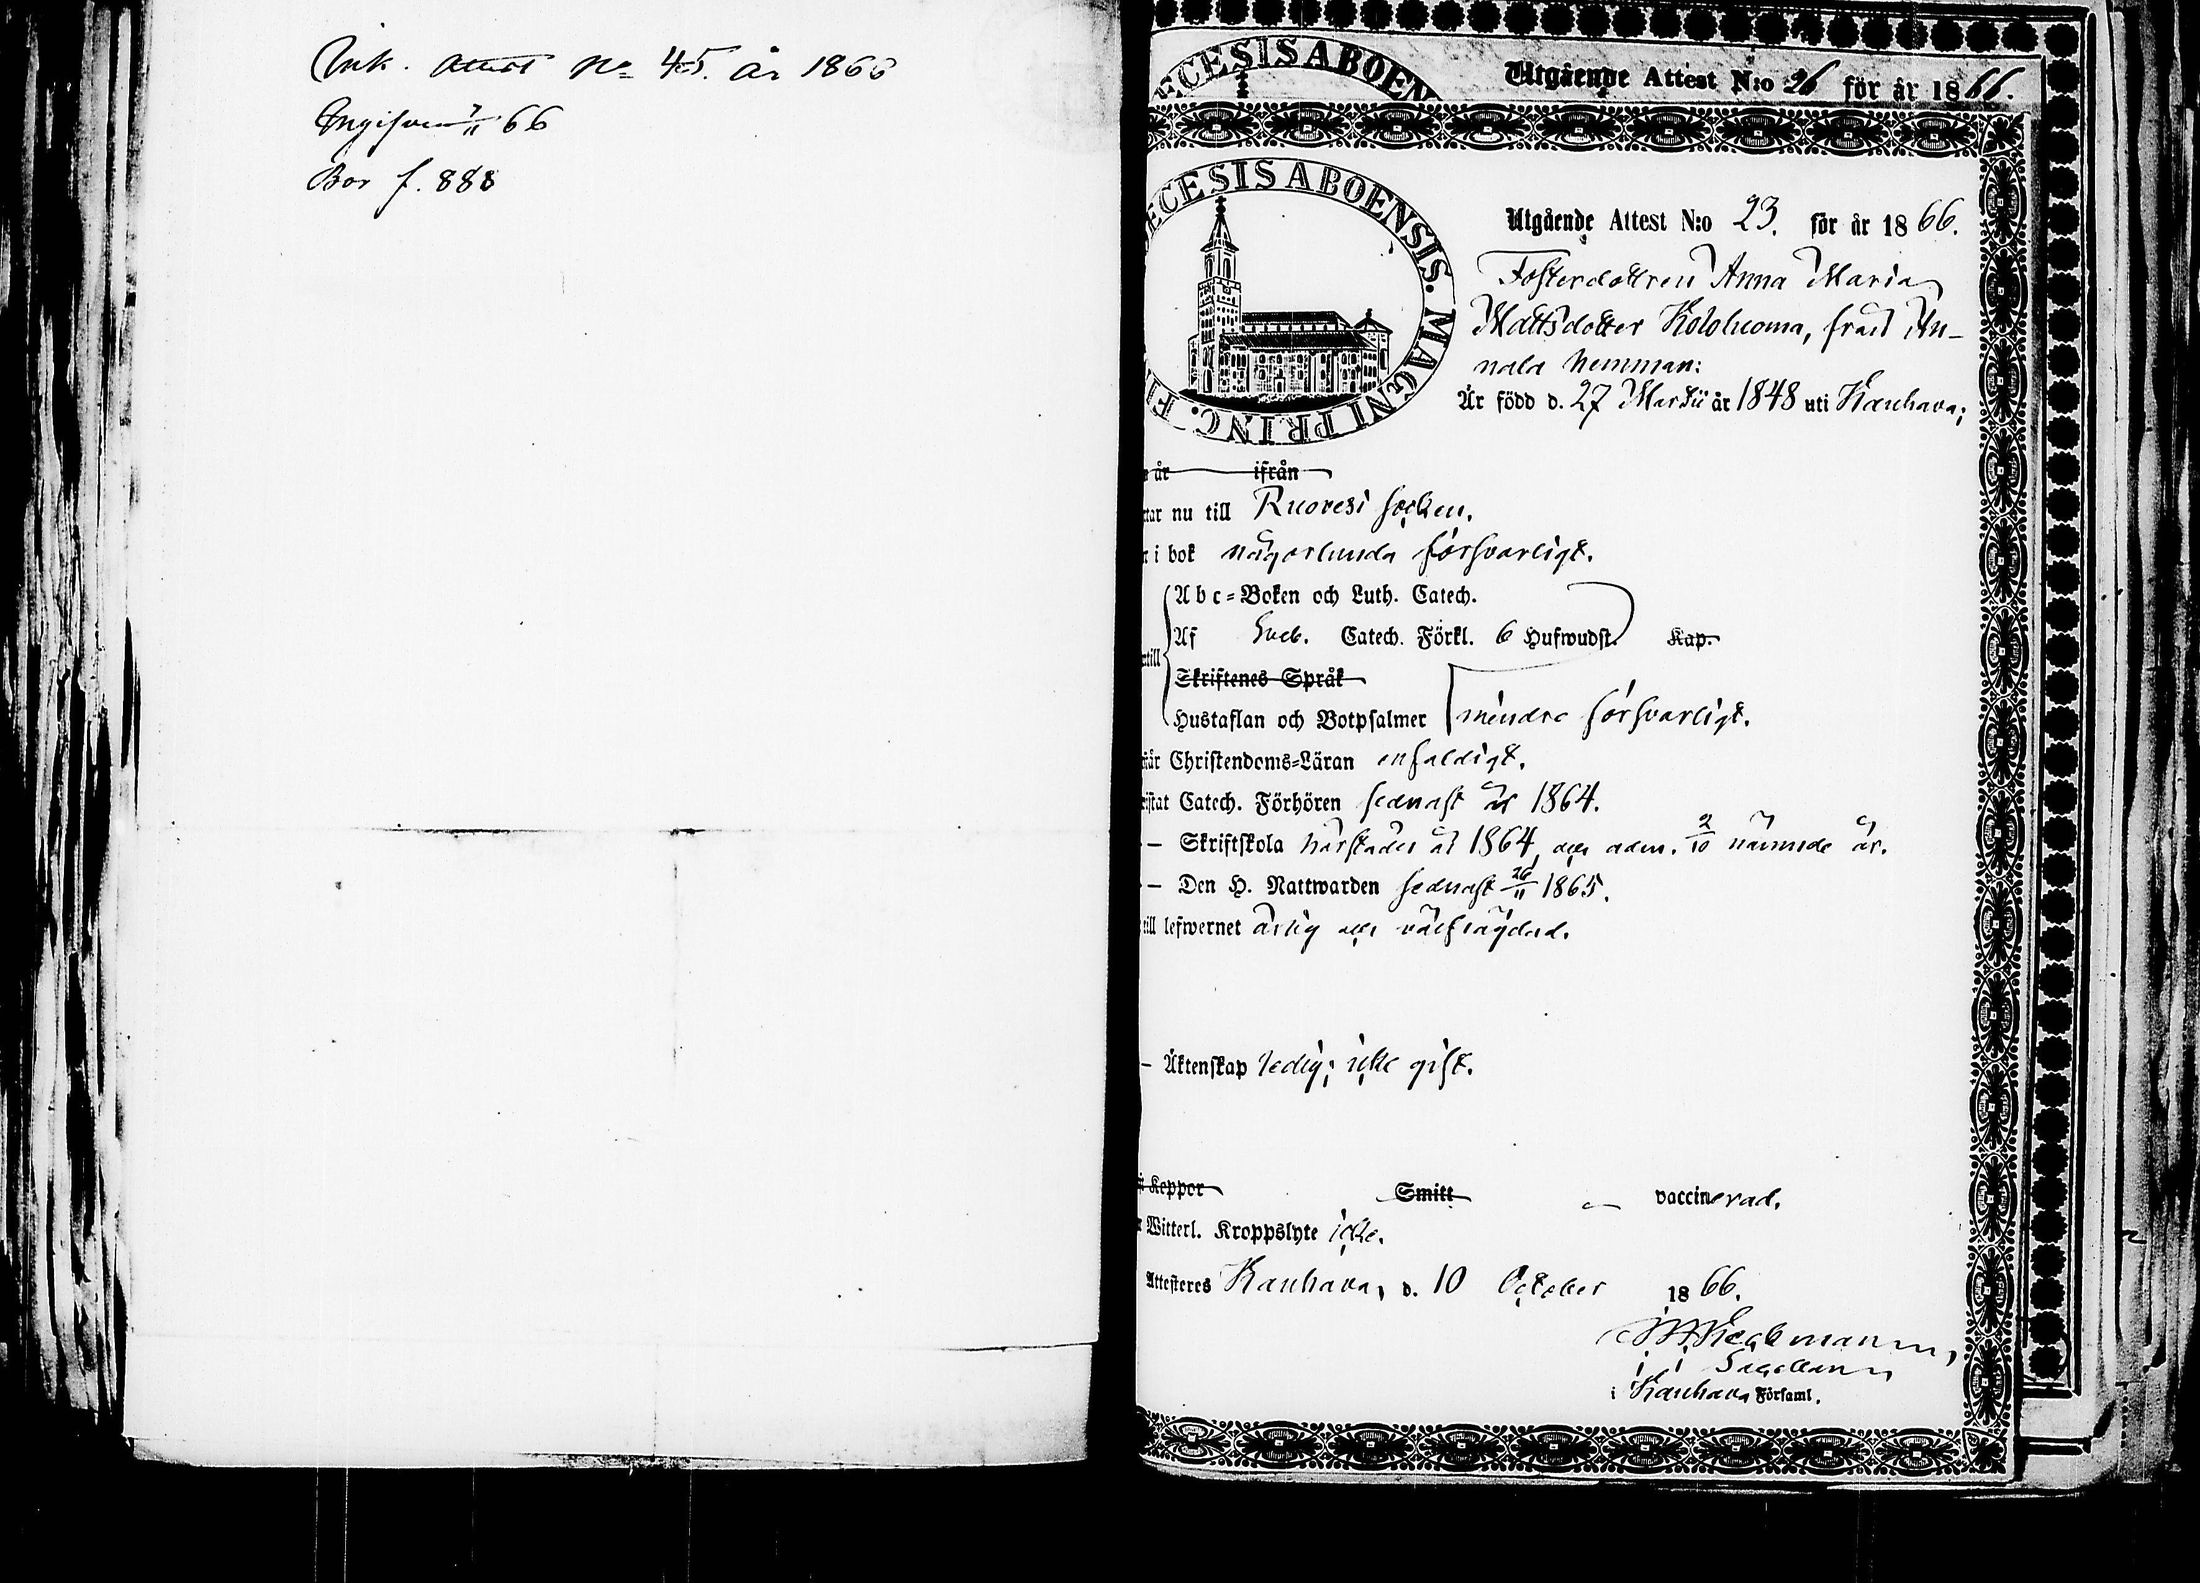 Ink. Attest No 45. år 1866
Ingifven 7/11 66
Bor f. 888
ECESIS ABOEN
Utgående Attest N:o 26 för år 1866.
ECESIS ABOENSIS. MAGNI PRINC. F
Utgående Attest N:o 23. för år 1866.
Fosterdottren Anna Maria
Mattsdotter Kololuoma, från An-
nala hemman:
Är född d. 27 Martii år 1848 uti Kauhava;
år ifrån
tar nu till Ruovesi socken.
i bok någorlunda försvarligt.
Abc-Boken och Luth. Catech.
Af Sveb. Catech. Förkl. 6 Hufwudst. Kap.
till
Skriftenes Språk
Hustaflan och Botpsalmer mindre försvarligt.
Christendoms-Läran enfaldigt.
istat Catech. Förhören sednast år 1864.
— Skriftskola härstädes år 1864, och adm. 2/10 nämnde år.
— Den H. Nattwarden sednast 26/11 1865.
till lefwernet ärlig och välfrägdad.
— Äktenskap ledig; icke gift.
Koppor Smitt — vaccinerad.
Witterl. Kroppslyte icke.
Attesteres Kauhava, d. 10 October 1866.
i Kauhava Församl.